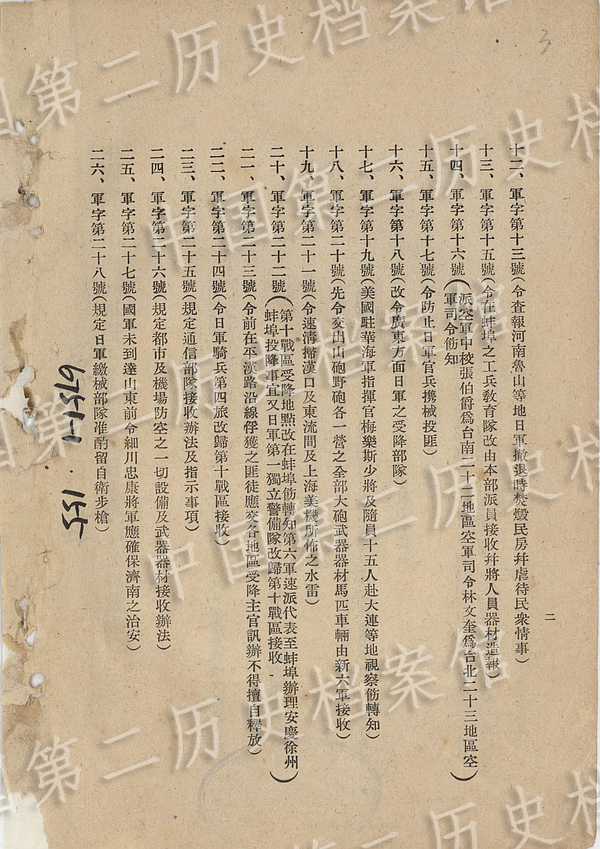 3
二
十二、軍字第十三號(令查報河南魯山等地日軍撤退時焚燬民房并虐待民衆情事)
十三、軍字第十五號(令在蚌埠之工兵敎育隊改由本部派員接收并將人員器材造報)
十四、軍字第十六號(派空軍中校張伯爵爲台南二十二地區空軍司令林文奎爲台北二十三地區空
軍司令飭知)
十五、軍字第十七號(令防止日軍官兵携械投匪)
十六、軍字第十八號(改令廣東方面日軍之受降部隊)
十七、軍字第十九號(美國駐華海軍指揮官梅樂斯少將及隨員十五人赴大連等地視察飭轉知)
十八、軍字第二十號(先令交出山砲野砲各一營之全部大砲武器器材馬匹車輛由新六軍接收)
十九、軍字第二十一號(令速清掃漢口及東流間及上海美機所佈之水雷)
二十、軍字第二十二號(第十戰區受降地點改在蚌埠飭轉知第六軍速派代表至蚌埠辦理安慶徐州
蚌埠投降事宜又日軍第一獨立警備隊改歸第十戰區接收)
二一、軍字第二十三號(令前在平漢路沿線俘獲之匪徒應交各地區受降主官訊辦不得擅自釋放)
二二、軍字第二十四號(令日軍騎兵第四旅改歸第十戰區接收)
二三、軍字第二十五號(規定通信部隊接收辦法及指示事項)
二四、軍字第二十六號(規定都市及機場防空之一切設備及武器器材接收辦法)
二五、軍字第二十七號(國軍未到達山東前令細川忠康將軍應確保濟南之治安)
二六、軍字第二十八號(規定日軍繳械部隊准酌留自衛步槍)
中国第二历史档案馆